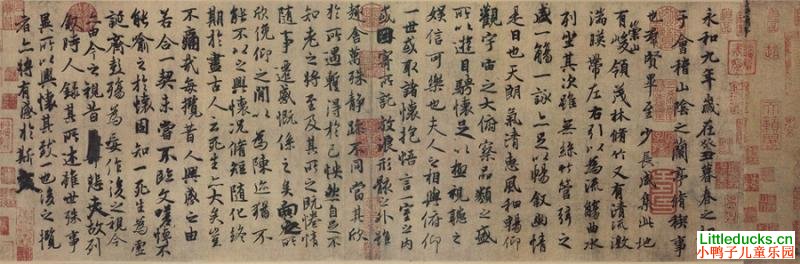 永和九年歲在癸丑暮春之初
于會稽山陰之蘭亭脩稧事
也群賢畢至少長咸集此地
有崇山峻領茂林脩竹又有清流激
湍暎帶左右引以為流觴曲水
列坐其次雖無絲竹管弦之
盛一觴一詠亦足以暢敘幽情
是日也天朗氣清惠風和暢仰
觀宇宙之大俯察品類之盛
所以遊目騁懷足以極視聽之
娛信可樂也夫人之相與俯仰
一世或取諸懷抱悟言一室之內
或因寄所託放浪形骸之外雖
趣舍萬殊靜躁不同當其欣
於所遇蹔得於己怏然自足不
知老之將至及其所之既惓情
隨事遷感慨係之矣向之所
欣俛仰之間以為陳迹猶不
能不以之興懷況脩短隨化終
期於盡古人云死生亦大矣豈
不痛哉每攬昔人興感之由
若合一契未嘗不臨文嗟悼不
能喻之於懷固知一死生為虛
誕齊彭殤為妄作後之視今
亦由今之視昔悲夫故列
敘時人錄其所述雖世殊事
異所以興懷其致一也後之攬
者亦將有感於斯文
Littleducks.cn
小鸭子儿童乐园